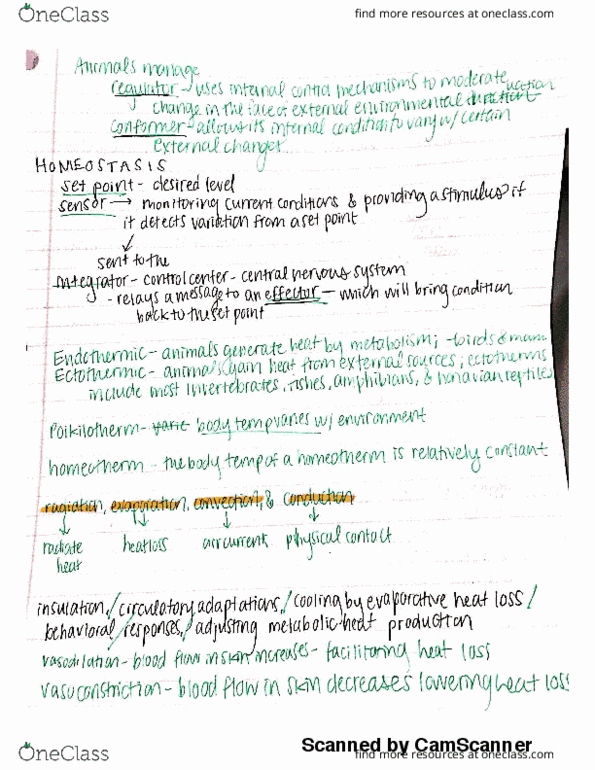 OneClass
find more resources at oneclass.com
Animals manage
regulator → uses internal control mechanisms to moderate
change in the face of external environmental function
Conformer - allows its internal condition to vary w/ certain
external changes
HOMEOSTASIS
set point - desired level
sensor → monitoring current conditions & providing a stimulus if
it detects variation from a set point
sent to the
integrator - control center - central nervous system
- relays a message to an effector - which will bring condition
back to the set point
Endothermic - animals generate heat by metabolism; - birds & mam
Ectothermic - animals gain heat from external sources; ectotherms
include most invertebrates, fishes, amphibians, & nonavian reptiles
Poikilotherm - varie body temp varies w/ environment
homeotherm - the body temp of a homeotherm is relatively constant
radiation, evaporation, convection, & conduction
radiate heatloss air current physical contact
heat
insulation, / circulatory adaptations, / cooling by evaporative heat loss /
behavioral / responses, / adjusting metabolic heat production
vasodilation - blood flow in skin increases - facilitating heat loss
vasoconstriction - blood flow in skin decreases lowering heat loss
Scanned by CamScanner
OneClass
find more resources at oneclass.com